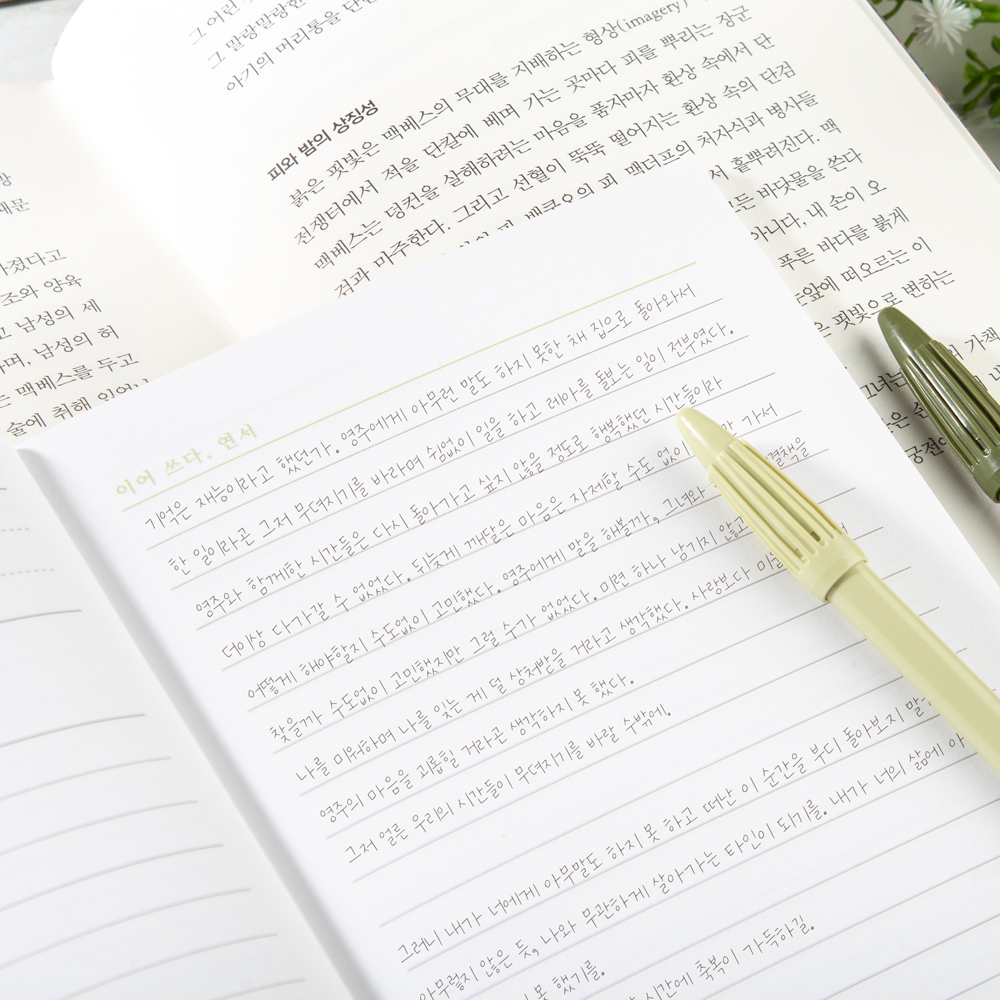 그 어린
그 말랑말랑한
아기의 머리통을
피와 밤의 상징성
붉은 핏빛은 맥베스의 무대를 지배하는 형상(imagery)
전쟁터에서 적을 단칼에 베며 가는 곳마다 피를 뿌리는 장군
맥베스는 덩컨을 살해하려는 마음을 품자마자 환상 속에서 단
검과 마주한다. 그리고 선혈이 뚝뚝 떨어지는 환상 속의 단검
피 맥더프의 처자식과 병사들
흩뿌려진다. 맥
바닷물을 쓴다
아니다, 내 손이 오
푸른 바다를 붉게
눈앞에 떠오르는 이
핏빛으로 변하는
가책
졌다고
조와 양육
남성의 세
며, 남성의 허
맥베스를 두고
술에 취해
이어 쓰다, 연서
기억은 재능이라고 했던가. 영주에게 아무런 말도 하지 못한 채 집으로 돌아와서
한 일이라곤 그저 무뎌지기를 바라며 쉼없이 일을 하고 레아를 돌보는 일이 전부였다.
영주와 함께한 시간들은 다시 돌아가고 싶지 않을 정도로 행복했던 시간들이라
더이상 다가갈 수 없었다. 뒤늦게 깨달은 마음은 자제할 수도 없이 가서
어떻게 해야할지 수도없이 고민했다. 영주에게 말을 해볼까, 그녀와 해결책을
찾을까 수도없이 고민했지만 그럴 수가 없었다. 미련 하나 남기지 않고
나를 미워하며 나를 잊는 게 덜 상처받을 거라고 생각했다. 사랑보다
영주의 마음을 괴롭힐 거라곤 생각하지 못 했다.
그저 얼른 우리의 시간들이 무뎌지기를 바랄 수밖에.
그러니 내가 너에게 아무말도 하지 못 하고 떠난 이 순간을 부디 돌아보지 말
아무렇지 않은 듯, 나와 무관하게 살아가는 타인이 되기를. 내가 너의 삶에
못 했기를.
시간에 축복이 가득하길.